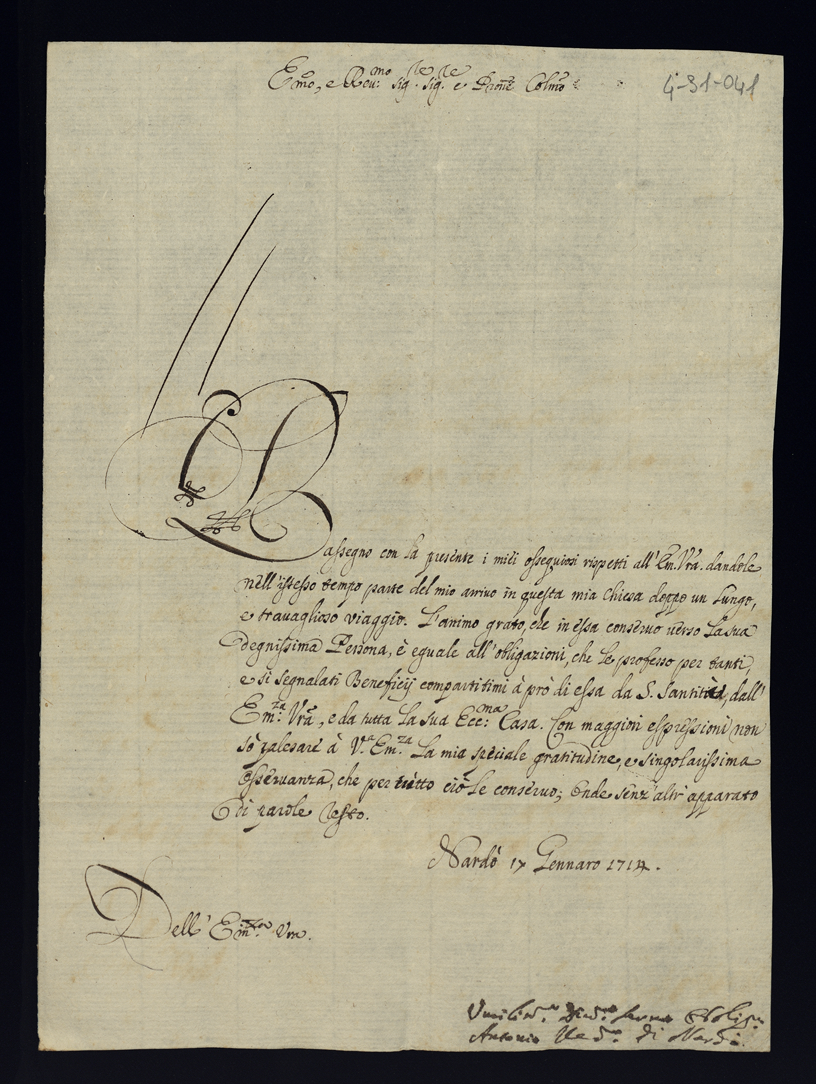 Em̃o, e Reu:mo Sig.re Sig.re e Prone Colmo
4-31-041
Rassegno con la presente i miei ossequiosi rispetti all'Em. Vrã. dandole
nell'istesso tempo parte del mio arriuo in questa mia Chiesa doppo un lungo,
e trauaglioso viaggio. L'animo grato, che in essa conseruo uerso la sua
Degnissima Persona, è eguale all'obligazioni, che le professo per tanti,
e si segnalati Beneficij compartitimi à prò di essa da S. Santità, dall'
Em.za Vrã, e da tutta la sua Ecc:ma Casa. Con maggiori espressioni non
sò palesare à V.a Em.za la mia speciale gratitudine, e singolarissima
osseruanza, che per tutto ciò le conseruo; Onde senz'altr'apparato
di parole resto.
Nardò 17 Gennaro 1714.
Dell' Em.za Vra.
Umilis.o Diu.o Seruo Oblig.o
Antonio Ve.o di Nardò